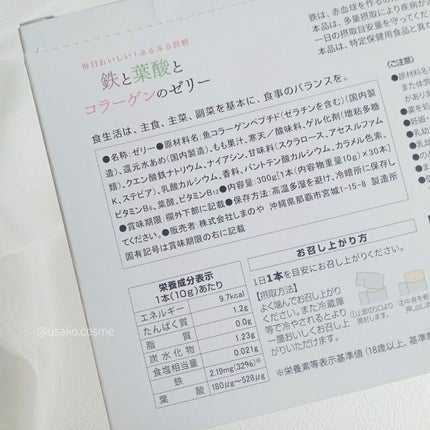 毎日おいしい!ぷるぷる習慣
鉄と葉酸と
コラーゲンのゼリー
食生活は、主食、主菜、副菜を基本に、食事のバランスを。
●名称:ゼリー●原材料名:魚コラーゲンペプチド(ゼラチンを含む)(国内製
造)、還元水あめ(国内製造)、もも果汁、寒天/酸味料、ゲル化剤(増粘多糖
類)、クエン酸鉄ナトリウム、ナイアシン、甘味料(スクラロース、アセスルファム
K、ステビア)、乳酸カルシウム、香料、パントテン酸カルシウム、カラメル色素、
ビタミンB₆、葉酸、ビタミンB₁₂●内容量:300g[1本(内容物重量10g)×30本]
●賞味期限:欄外下部に記載●保存方法:高温多湿を避け、冷暗所に保存し
てください。●販売者:株式会社しまのや 沖縄県那覇市宮城1-15-8 製造所
固有記号は賞味期限の右に記載
栄養成分表示
1本(10g)あたり
エネルギー 9.7kcal
たんぱく質 1.2g
脂質 0.0g
炭水化物 1.23g
食塩相当量 0.021g
鉄 2.19mg(32%)※
葉酸 180μg〜528μg
お召し上がり方
1日1本を目安にお召し上がりください。
【摂取方法】
よく噛んでお召し上がり
ください。また冷蔵庫
等で冷やされるとより
一層おいしくお召し上
がりいただけます。
①上部切り口より
開封します。
②中身を軽
押し出しま
※栄養素等表示基準値(18歳以上、基準熱
鉄は、赤血球を作るの
本品は、多量摂取により疾病が
一日の摂取目安量を守ってくだ
本品は、特定保健用食品と異な
《ご注意》
●原材料名
@usako.cosme